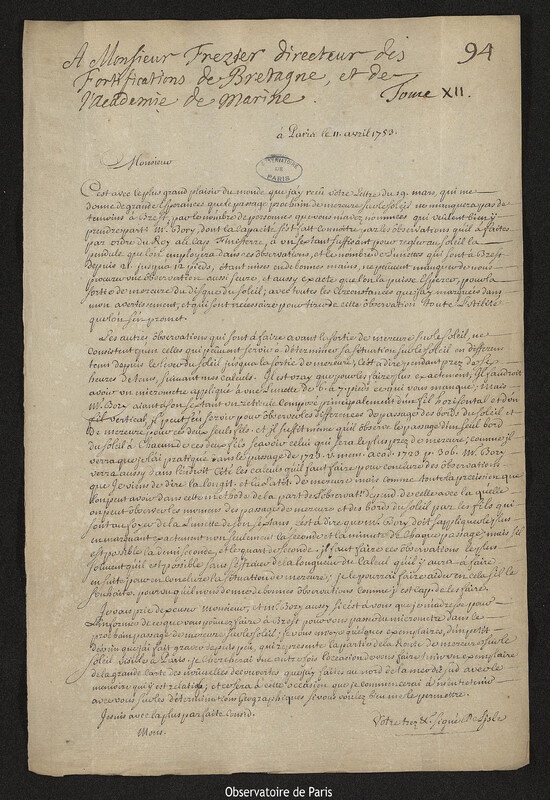 A Monsieur Frezier directeur des
Fortifications de Bretagne, et de
l'Academie de Marine.
94
Tome XII.
à Paris le 11. avril 1753.
OBSERVATOIRE DE PARIS
Monsieur
C'est avec le plus grand plaisir du monde que j'ay reçu votre Lettre du 19. mars, qui me
donne de grandes esperances que le passage prochain de mercure sur le soleil ne manquera pas de
temoins à Brest, par le nombre de personnes que vous m'avez nommées qui veulent bien y
prendre part. M. Bory, dont la capacité s'est fait connoître par les observations qu'il a faites
par ordre du Roy au Cap Finisterre, a un sextant suffisant pour regler au soleil la
pendule que l'on employera dans ces observations, et le nombre de Lunettes qui sont à Brest
depuis jusques 12 pieds, étant mises en de bonnes mains, ne peuvent manquer de nous
procurer une observation aussi sure, et aussi exacte que l'on la puisse esperer, pour la
sortie de mercure du disque du soleil, avec toutes les circonstances que j'ay marquées dans
mon avertissement, et qui sont necessaires pour tirer de cette observation toute l'utilité
que l'on s'en promet.
Les autres observations qui sont à faire avant la sortie de mercure sur le soleil, ne
consistent qu'en celles qui peuvent servir à determiner sa situation sur le soleil en differens
tems depuis le lever du soleil jusqu'à la sortie de mercure, c'est à dire pendant près de
heures de tems, suivant mes calculs. Il est vray que pour les faire plus exactement, il faudroit
avoir un micrometre appliqué à une Lunette de 6 à 7 pieds, ce qui vous manque; mais
Mr. Bory aiant à son sextant un reticule composé principalement d'un fil horizontal et d'un
fil vertical, il peut s'en servir pour observer les differences de passage des bords du soleil et
de mercure pour ces deux seuls fils; et il suffit même qu'il observe le passage d'un seul bord
du soleil à chacun de ces deux fils, sçavoir celui qui sera le plus près de mercure; comme il
verra que je l'ai pratiqué dans le passage de 1723. v. mem. acad. 1723 p. 306. M. Bory
verra aussi dans l'endroit cité les calculs qu'il faut faire pour conclure des observations
que je viens de dire la longit. et la Latit. de mercure; mais comme toute la precision que
l'on peut avoir dans cette methode de la part de l'observatr. depend de celle avec laquelle
on peut observer les momens des passages de mercure et des bords du soleil par les fils qui
sont au foyer de la Lunette de son sextans, c'est à dire que mr. Bory doit s'appliquer le plus
en marquant exactement non seulement la seconde et la minute de chaque passage, mais s'il
est possible la demi seconde, et le quart de seconde; il faut faire ces observations le plus
souvent qu'il est possible sans s'effrayer de la longueur du calcul qu'il y aura à faire
ensuite pour en conclure la situation de mercure; je le pourrai faire aider en cela s'il le
souhaite, pourvu qu'il nous donne de bonnes observations comme il est capable de les faire.
Je vais pie de peur monsieur, et mr. Bory aussi si c'est à vous que je m'adresse pour
l'informer de ce que vous pouvez faire à Brest pour vous passer du micrometre dans le
prochain passage de mercure sur le soleil; je vous envoye quelques exemplaires, d'un petit
dessin que j'ai fait graver depuis peu, qui represente la partie de la Route de mercure sur le
soleil visible à Paris. je chercherai une autre fois l'occasion de vous faire tenir un exemplaire
de la grande carte des nouvelles decouvertes que j'ay faites au nord de la mer du sud avec le
memoire qui y est relatif; et ce sera à cette occasion que je commencerai à m'entretenir
avec vous sur les determinations Geographiques si vous voulez bien me le permettre.
Je suis avec la plus parfaite consid.
Mons.
Votre tres &. signé De Lisle
Observatoire de Paris